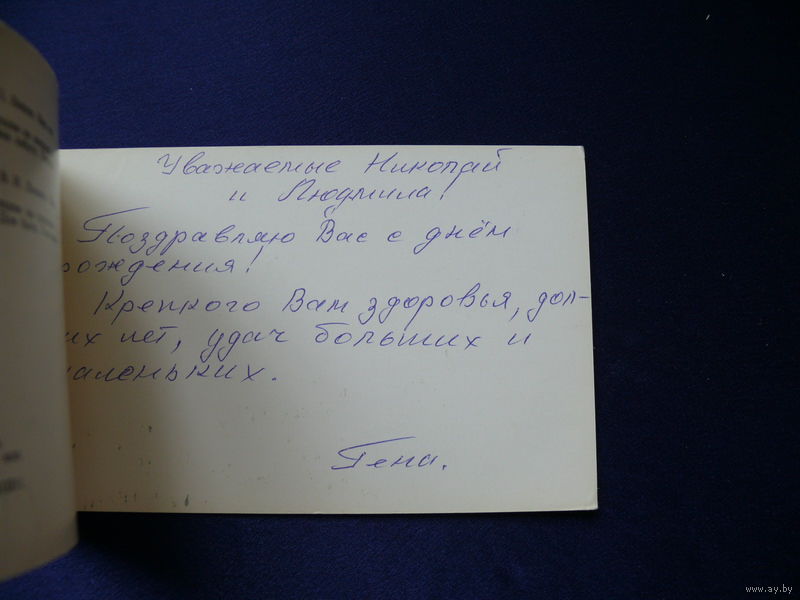 Уважаемые Николай
и Людмила!
Поздравляю Вас с днём
рождения!
Крепкого Вам здоровья, дол-
их лет, удач больших и
аленьких.
Гена.
www.ay.by